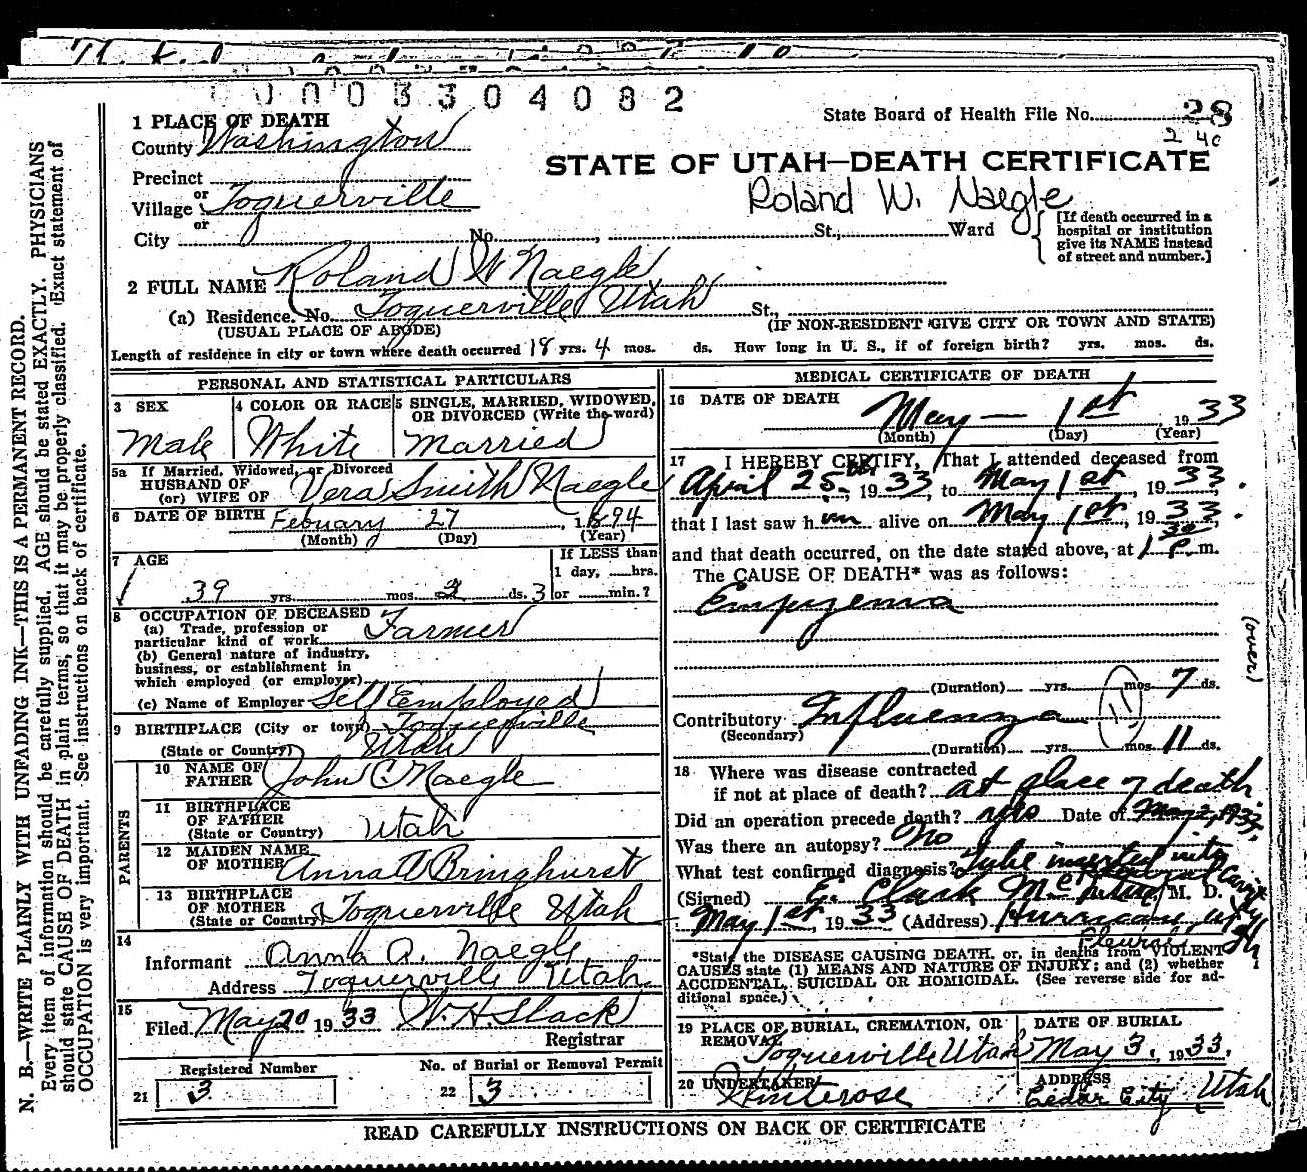 0003304082
State Board of Health File No. 28
2 40
1 PLACE OF DEATH
County Washington
STATE OF UTAH—DEATH CERTIFICATE
Precinct
or
Village Toquerville
Roland W. Naegle
or
City No. , St., Ward
[If death occurred in a
hospital or institution
give its NAME instead
of street and number.]
2 FULL NAME Roland W Naegle
(a) Residence. No. Toquerville Utah St.,
(USUAL PLACE OF ABODE) (IF NON-RESIDENT GIVE CITY OR TOWN AND STATE)
Length of residence in city or town where death occurred 18 yrs. 4 mos. ds. How long in U. S., if of foreign birth? yrs. mos. ds.
PERSONAL AND STATISTICAL PARTICULARS
3 SEX
Male
4 COLOR OR RACE
White
5 SINGLE, MARRIED, WIDOWED,
OR DIVORCED (Write the word)
Married
5a If Married, Widowed, or Divorced
HUSBAND OF
(or) WIFE OF Vera Smith Naegle
6 DATE OF BIRTH Febuary 27, 1894
(Month) (Day) (Year)
7 AGE
If LESS than
1 day, hrs.
39 yrs. mos. 2 ds. 3 or min.?
8 OCCUPATION OF DECEASED
(a) Trade, profession or
particular kind of work Farmer
(b) General nature of industry,
business, or establishment in
which employed (or employer)
(c) Name of Employer Self Employed
9 BIRTHPLACE (City or town) Toquerville
(State or Country) Utah
PARENTS
10 NAME OF
FATHER John C. Naegle
11 BIRTHPLACE
OF FATHER
(State or Country) Utah
12 MAIDEN NAME
OF MOTHER Anna A Bringhurst
13 BIRTHPLACE
OF MOTHER
(State or Country) Toquerville Utah
14
Informant Anna A. Naegle
Address Toquerville Utah.
15
Filed May 20 1933 W. H. Slack
Registrar
Registered Number
21 3
No. of Burial or Removal Permit
22 3
MEDICAL CERTIFICATE OF DEATH
16 DATE OF DEATH
May — 1st, 1933
(Month) (Day) (Year)
17 I HEREBY CERTIFY, That I attended deceased from
April 25, 1933, to May 1st, 1933.
that I last saw him alive on May 1st, 1933.
and that death occurred, on the date stated above, at 1 30 P. m.
The CAUSE OF DEATH* was as follows:
Empyema
(over)
(Duration) yrs. mos. 7 ds.
Contributory Influenza
11
(Secondary)
(Duration) yrs. mos. 11 ds.
18 Where was disease contracted
if not at place of death? at place of death.
Did an operation precede death? yes Date of May 2, 1933.
Was there an autopsy? No
What test confirmed diagnosis? Tube inserted into
Pleural Cavity
(Signed) E. Clark M. D.
May 1st, 1933 (Address) Hurricane Utah
*State the DISEASE CAUSING DEATH, or, in deaths from VIOLENT
CAUSES state (1) MEANS AND NATURE OF INJURY; and (2) whether
ACCIDENTAL, SUICIDAL OR HOMICIDAL. (See reverse side for ad-
ditional space.)
19 PLACE OF BURIAL, CREMATION, OR
REMOVAL
Toquerville Utah
DATE OF BURIAL
May 3, 1933.
20 UNDERTAKER
ADDRESS
Cedar City Utah
READ CAREFULLY INSTRUCTIONS ON BACK OF CERTIFICATE
N. B.—WRITE PLAINLY WITH UNFADING INK—THIS IS A PERMANENT RECORD.
Every item of information should be carefully supplied. AGE should be stated EXACTLY. PHYSICIANS
should state CAUSE OF DEATH in plain terms, so that it may be properly classified. Exact statement of
OCCUPATION is very important. See instructions on back of certificate.